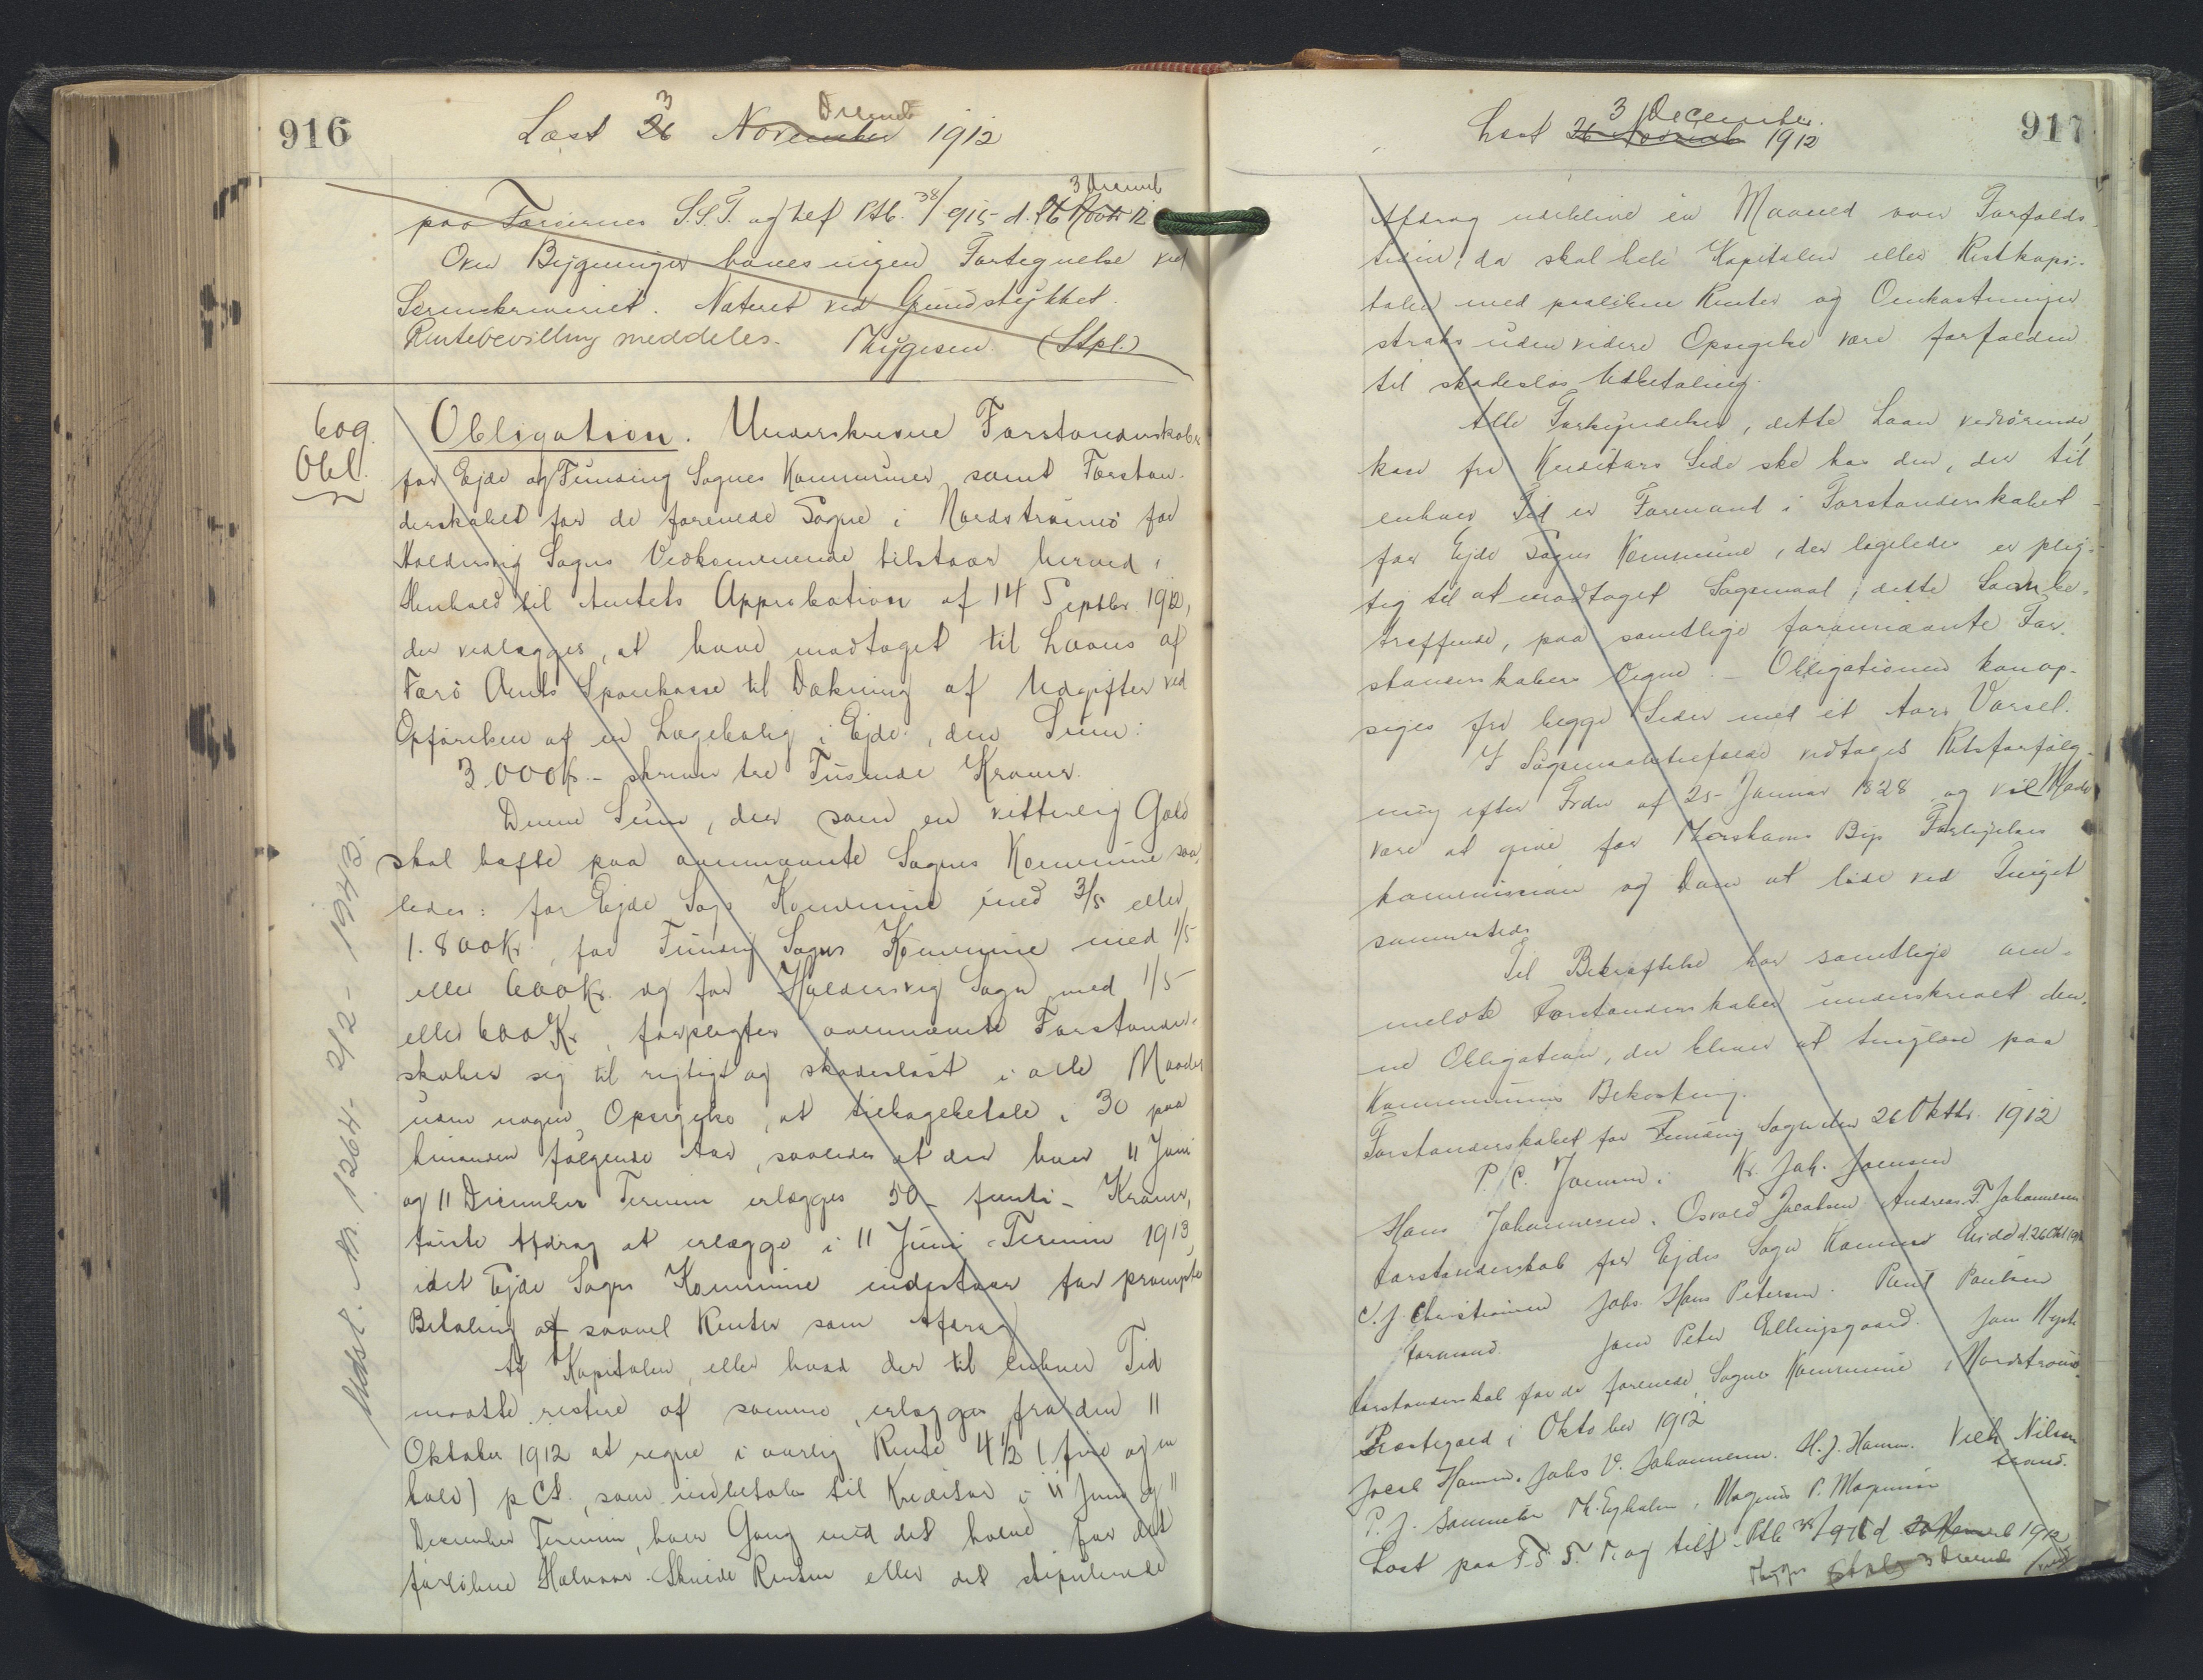 916
Læst 26 November 1912
3 Decemb
paa Færøernes S.S.T. og tilf Ptb. 38/915 d. 26 Novb 12
3 Decemb
Over Bygninger haves ingen Fortegnelse ved
Sorenskriveriet. Noteret ved Grundstykket.
Rentebevilling meddeles. Thygesen. (Stpl.)
609.
Obl.
Obligation. Underskrevne Forstanderskaber
for Ejde og Funding Sognes Kommuner samt Forstan-
derskabet for de forenede Sogne i Nordstrømø for
Haldersvig Sogns Vedkommende tilstaar herved i
Henhold til Amtets Approbation af 14 Septbr. 1912,
der vedlægges, at have modtaget til Laans af
Færø Amts Sparekasse til Dækning af Udgifter ved
Opførelsen af en Lægebolig i Ejde, den Sum:
3.000 Kr. - skriver tre Tusende Kroner.
Denne Sum, der som en vitterlig Gæld
skal hæfte paa ovennævnte Sognes Kommune saa-
ledes: for Ejde Sogs Kommune med 3/5 eller
1.800 Kr., for Funding Sogns Kommune med 1/5
eller 600 Kr. og for Haldersvig Sogn med 1/5
eller 600 Kr, forpligter ovennævnte Forstander-
skaber sig til rigtigt og skadesløst i alle Maader
uden nogen Opsigelse, at tilbagebetale i 30 paa
hinanden følgende Aar, saaledes at der hver 11 Juni
og 11 December Termin erlægges 50 - femti - Kroner,
første Afdrag at erlægge i 11 Juni Termin 1913,
idet Ejde Sogns Kommune indestaar for prompte
Betaling af saavel Renter som Afdrag
Af Kapitalen, eller hvad der til enhver Tid
maatte restere af samme, erlægges fra den 11
Oktober 1912 at regne i aarlig Rente 4 1/2 (fire og en
halv) p Ct., som indbetales til Kreditor i 11 Juni og 11
December Termin, hver Gang med det halve for det
forløbne Halvaar. Skulde Renten eller det stipulerede
Udsl. Nr. 1264 - 2/2 - 1943.
917
Læst 26 Novemb 1912
3 December.
Afdrag udeblive en Maaned over Forfalds-
tiden, da skal hele Kapitalen eller Restkapi-
talen med paaløbne Renter og Omkostninger
straks uden videre Opsigelse være forfalden
til skadesløs Udbetaling.
Alle Forkyndelser, dette Laan vedrørende,
kan fra Kreditors Side ske hos den, der til
enhver Tid er Formand i Forstanderskabet
for Ejde Sogns Kommune, der ligeledes er plig-
tig til at modtaget Søgsmaal, dette Laan be-
træffende, paa samtlige forannævnte For-
standerskabers Vegne. - Obligationen kan op-
siges fra begge Sider med et Aars Varsel.
I Søgsmaalstilfælde vedtages Retsforfølg-
ning efter Frdn af 25 Januar 1828 og vil Møde
være at give for Thorshavns Bys Forligelses
kommission og Dom at lide ved Tinget
sammesteds
Til Bekræftelse har samtlige an-
meldte Forstanderskaber underskrevet den-
ne Obligation, der bliver at tinglæse paa
Kommunens Bekostning.
Forstanderskabet for Funding Sogn den 26 Oktbr. 1912
P. C. Joensen. Kr. Joh. Joensen
Hans Johannesen. Osvald Jacobsen Andreas F. Johannesen
Forstanderskab for Ejdes Sogn Kommune Eide d. 26 Okt 1912
C. J. Christiansen Johs. Hans Petersen. Paul Poulsen
Formand. Jens Peter Ellingsgaard. Jens
Forstanderskab for de forenede Sognes Kommune i Nordstrømø.
Præstegaard i Oktober 1912
Jocel Hansen. Johs V. Johannesen. H. J. Hansen. Vilh Nilsen
P. J. M. Ejholm. Magnus P. Magnussen formd.
Læst paa F. S. S. T. og tilf. Ptb 38/916 d. 1912
3 Decemb